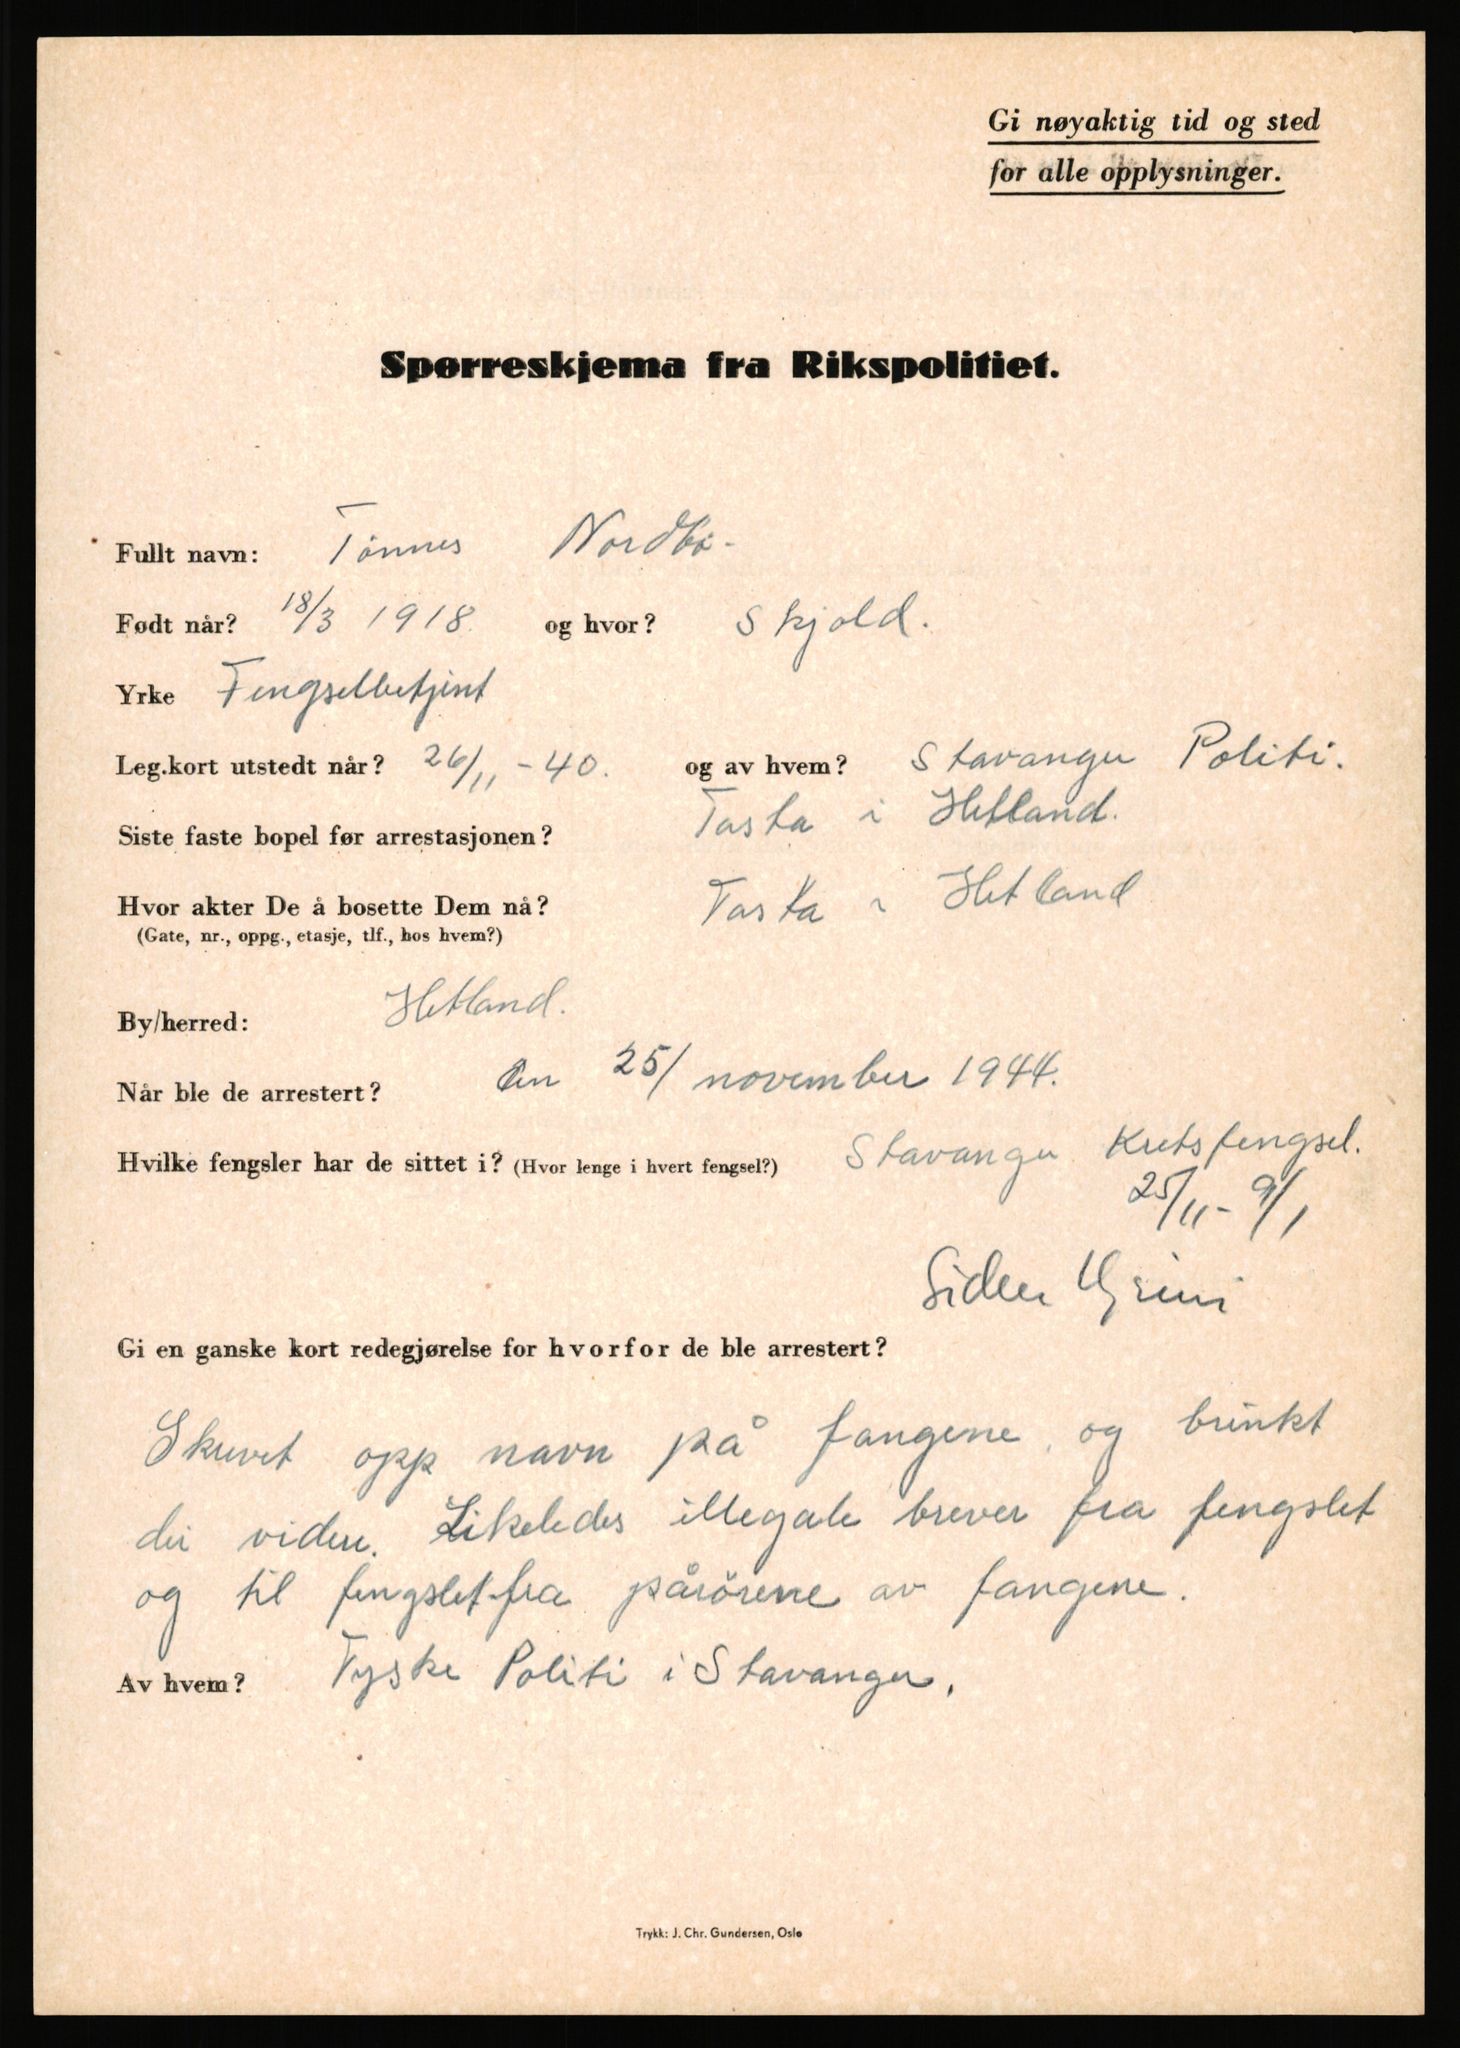 Gi nøyaktig tid og sted
for alle opplysninger.
Spørreskjema fra Rikspolitiet.
Fullt navn: Tønnes Nordbö.
Født når? 18/3 1918. og hvor? Skjold.
Yrke Fengselbetjent
Leg.kort utstedt når? 26/11-40. og av hvem? Stavanger Politi.
Siste faste bopel før arrestasjonen? Tasta i Hetland.
Hvor akter De å bosette Dem nå? Tasta i Hetland
(Gate, nr., oppg., etasje, tlf., hos hvem?)
By/herred: Hetland.
Når ble de arrestert? den 25/ november 1944.
Hvilke fengsler har de sittet i? (Hvor lenge i hvert fengsel?) Stavanger Kretsfengsel.
25/11-9/1
Siden Grini
Gi en ganske kort redegjørelse for hvorfor de ble arrestert?
Skrevet opp navn på fangene, og brinkt
dei videre. Likeledes illegale brever fra fengslet
og til fengslet fra pårörene av fangene.
Av hvem? Tyske Politi i Stavanger.
Trykk: J. Chr. Gundersen, Oslo